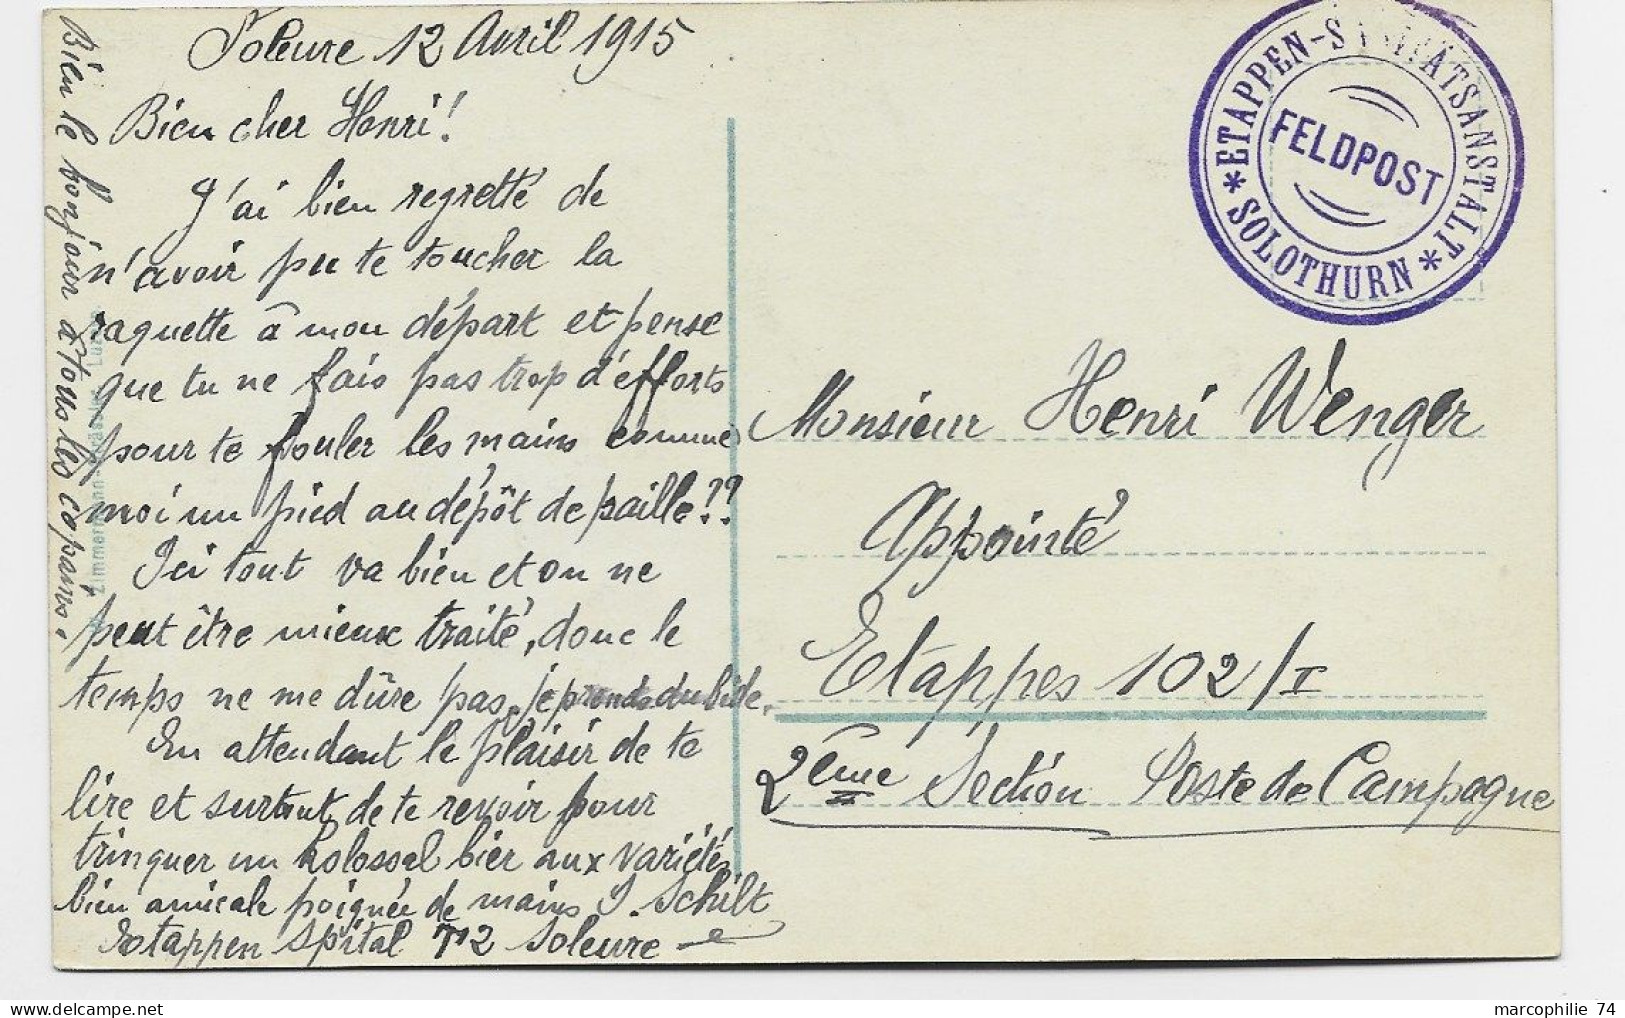 Soleure 12 Avril 1915
Bien cher Henri!
J'ai bien regretté de
n'avoir pu te toucher la
raquette à mon départ et pense
que tu ne fais pas trop d'efforts
pour te fouler les mains comme
moi un pied au dépôt de paille??
Ici tout va bien et on ne
peut être mieux traité, donc le
temps ne me dûre pas, je prends du bide.
En attendant le plaisir de te
lire et surtout de te revoir pour
trinquer un kolossal bier aux variétés
bien amicale poignée de mains J. Schilt
Etappen Spital 72 Soleure
Bien le bonjour à tous les copains.
Zimmermann
ETAPPEN-SANITÄTSANSTALT
FELDPOST
* SOLOTHURN *
Monsieur Henri Wenger
Appointé
Etappes 102/I
2ème Section Poste de Campagne
marcophilie 74